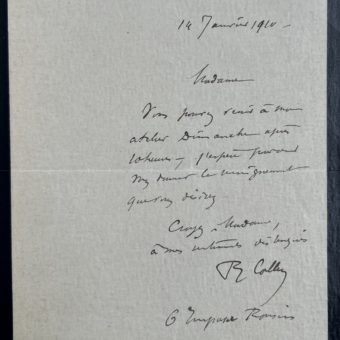 14 Janvier 1910 -
Madame
Vous pouvez venir à mon
atelier Dimanche après
10 heures - j'espère pouvoir
vous donner le renseignement
que vous désirez
Croyez, Madame,
à mes sentiments distingués
6 Impasse Ronsin